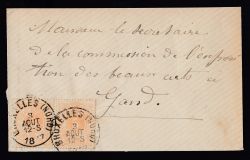 Monsieur le secrétaire
de la commission de l'expo
tion des beaux arts a
Gand.
BRUXELLES (NORD)
3
AOUT
12-S
18
BRUXELLES (NORD)
3
AOUT
12-S